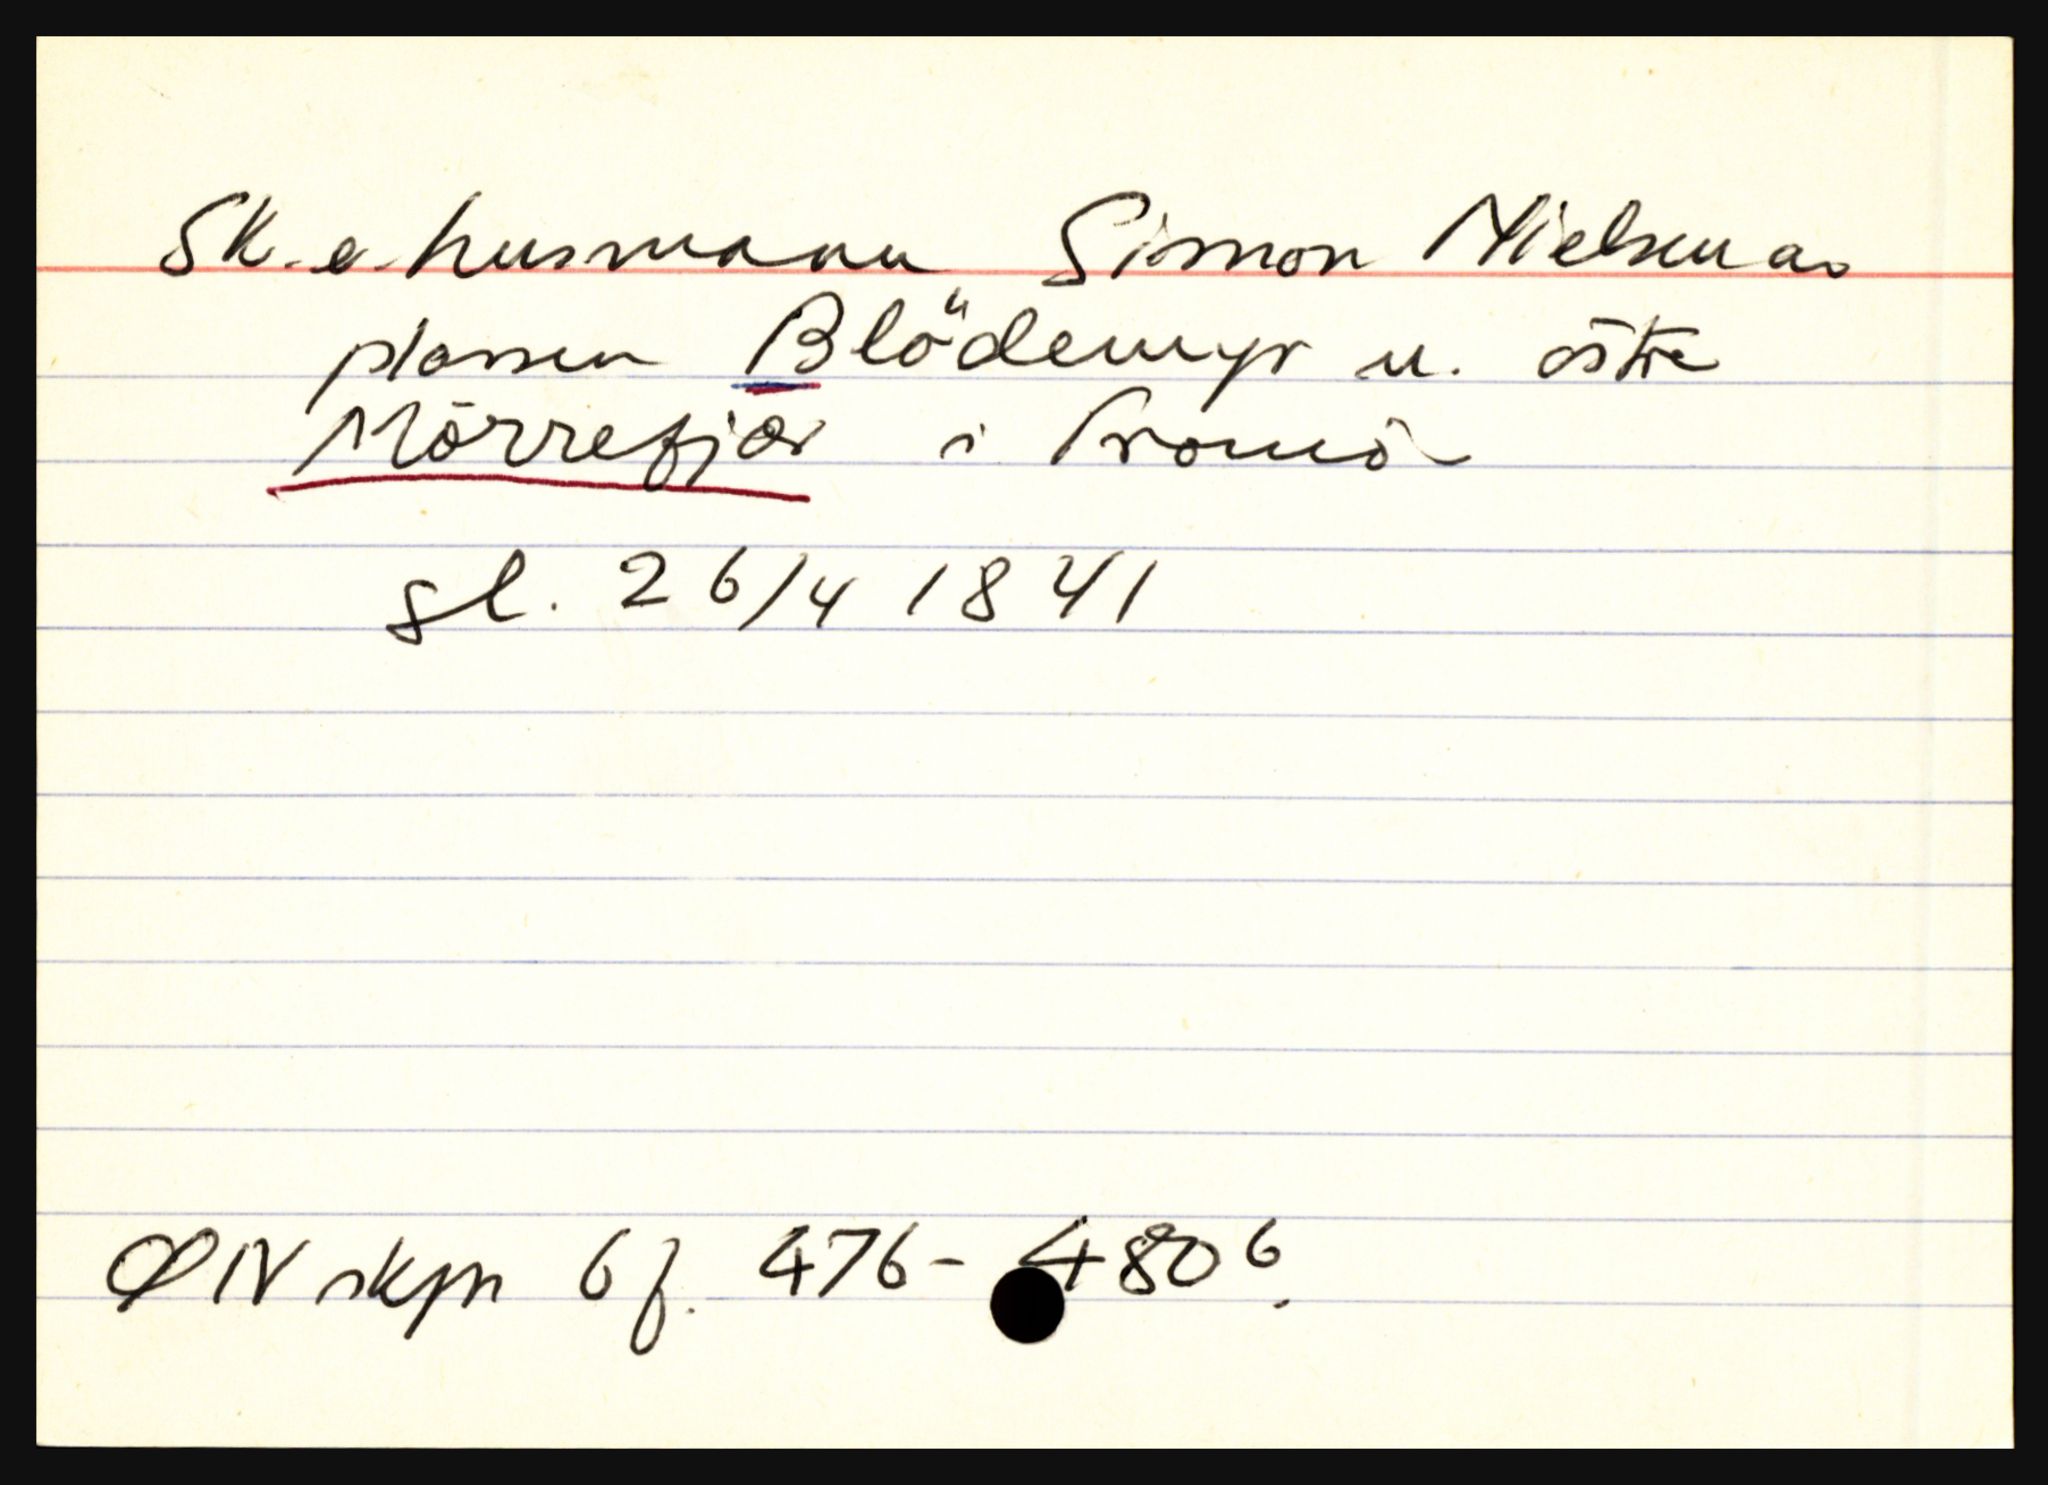 Sk. e. husmann Simon Nielsen av
plassen Blödemyr u. östre
Mörrefjær i Tromö
gl. 26/4 1841
Ø N skpr 6 f. 476-480 b.